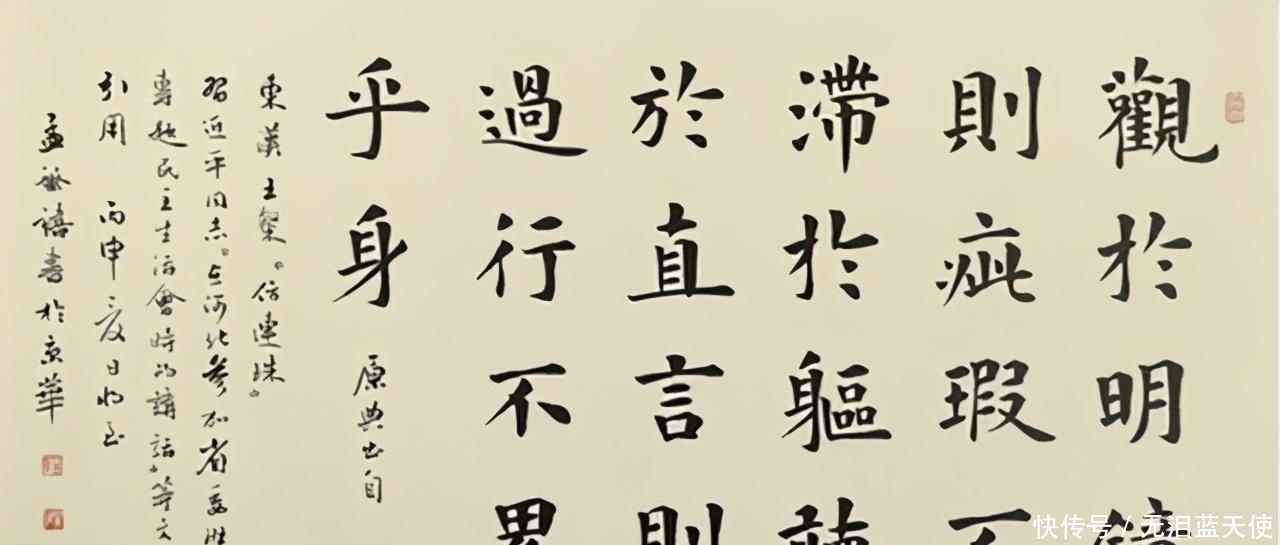 觀於明鏡
則疵瑕不
滯於軀
於直言則
過行不累
乎身
原典出自
東漢王粲《仿連珠》
習近平同志《在河北參加省委
專題民主生活會時的講話》等文
引用 丙申夏日
孟繁禧書於京華
快传号 / 无泪蓝天使